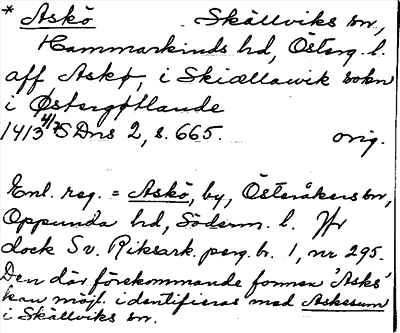 * Askö Skällviks sn,
Hammarkinds hd, Österg. l.
aff Askø, i Skiællawik sokn
i Østergøtlande
1413 4/7 SDns 2, s. 665. orig.
Enl. reg. = Askö, by, Österåkers sn,
Oppunda hd, Söderm. l. Jfr
dock Sv. Riksark. perg. br. 1, nr 295.
Den där förekommande formen 'Asks'
kan möjl. identifieras med Askesum
i Skällviks sn.